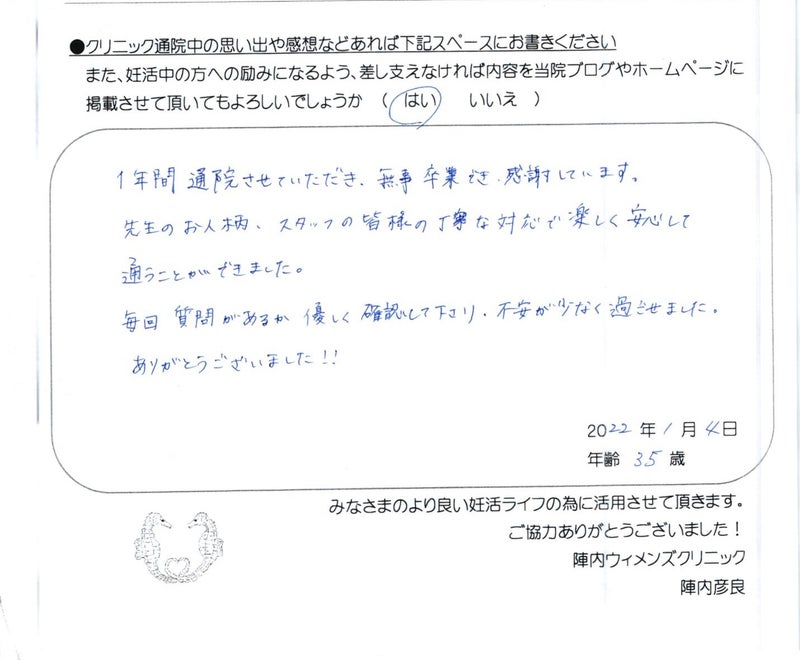 ●クリニック通院中の思い出や感想などあれば下記スペースにお書きください
また、妊活中の方への励みになるよう、差し支えなければ内容を当院ブログやホームページに
掲載させて頂いてもよろしいでしょうか （ はい　いいえ ）
1年間 通院させていただき、無事 卒業でき、感謝しています。
先生のお人柄、スタッフの皆様の丁寧な対応で楽しく安心して
通うことができました。
毎回 質問があるか 優しく 確認して下さり、不安が少なく過ごせました。
ありがとうございました!!
2022 年 1 月 4 日
年齢 35 歳
みなさまのより良い妊活ライフの為に活用させて頂きます。
ご協力ありがとうございました！
陣内ウィメンズクリニック
陣内彦良